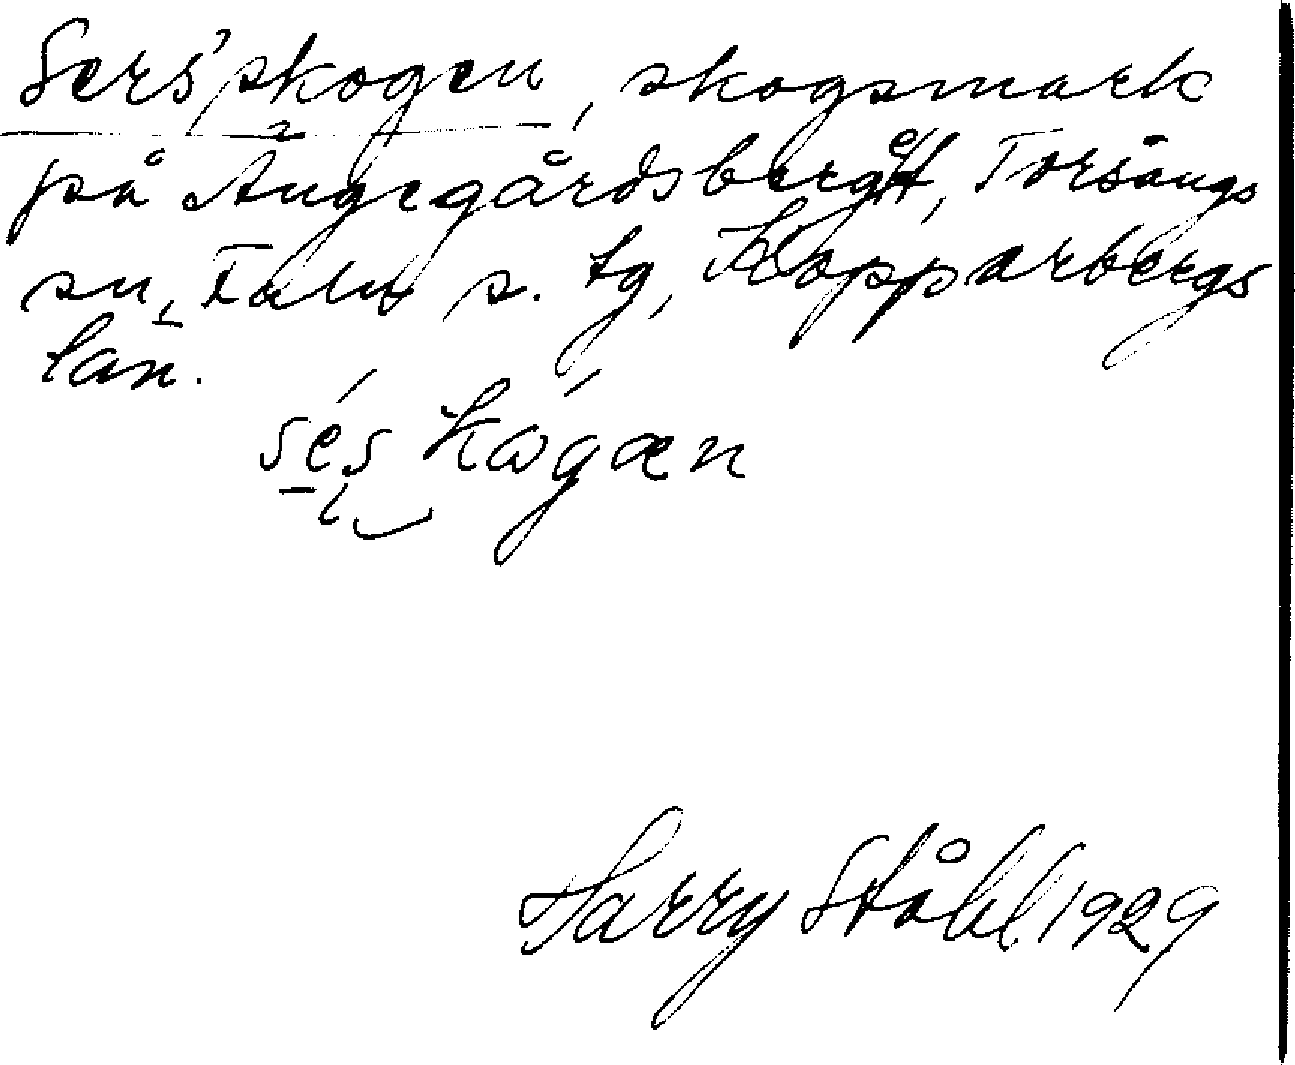 Sers'skogen, skogsmark
på Ängegårdsberget, Torsångs
sn, Falu s. tg, Kopparbergs
län.
Harry Ståhl 1929